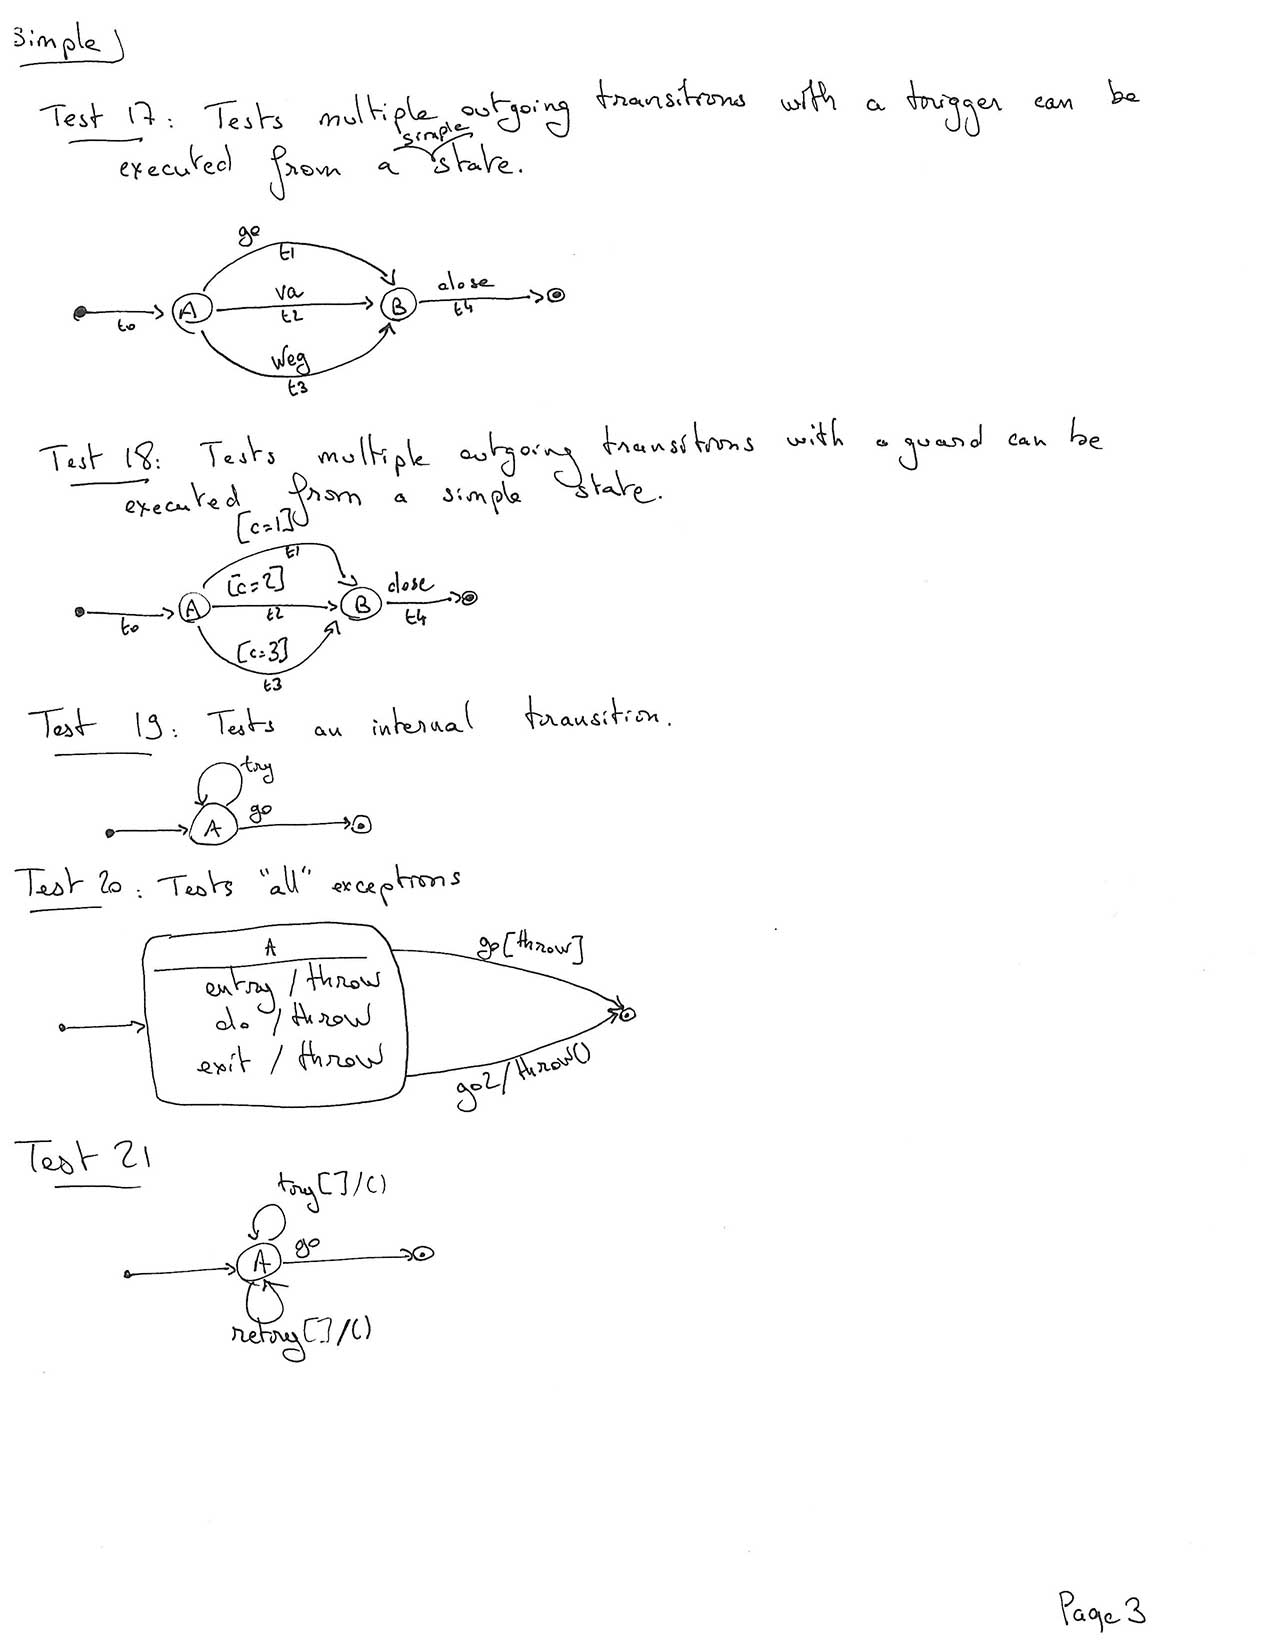 Simple)
Test 17: Tests multiple outgoing transitions with a trigger can be
simple
executed from a state.
go
t1
va
close
A
B
t0
t2
t4
Weg
t3
Test 18: Tests multiple outgoing transitions with a guard can be
executed from a simple state.
[c=1]
t1
[c=2]
close
A
B
t0
t2
t4
[c=3]
t3
Test 19: Tests an internal transition.
try
go
A
Test 20: Tests "all" exceptions
A
go[throw]
entry / throw
do / throw
exit / throw
go2/throw()
Test 21
try[]/()
go
A
retry[]/()
Page 3